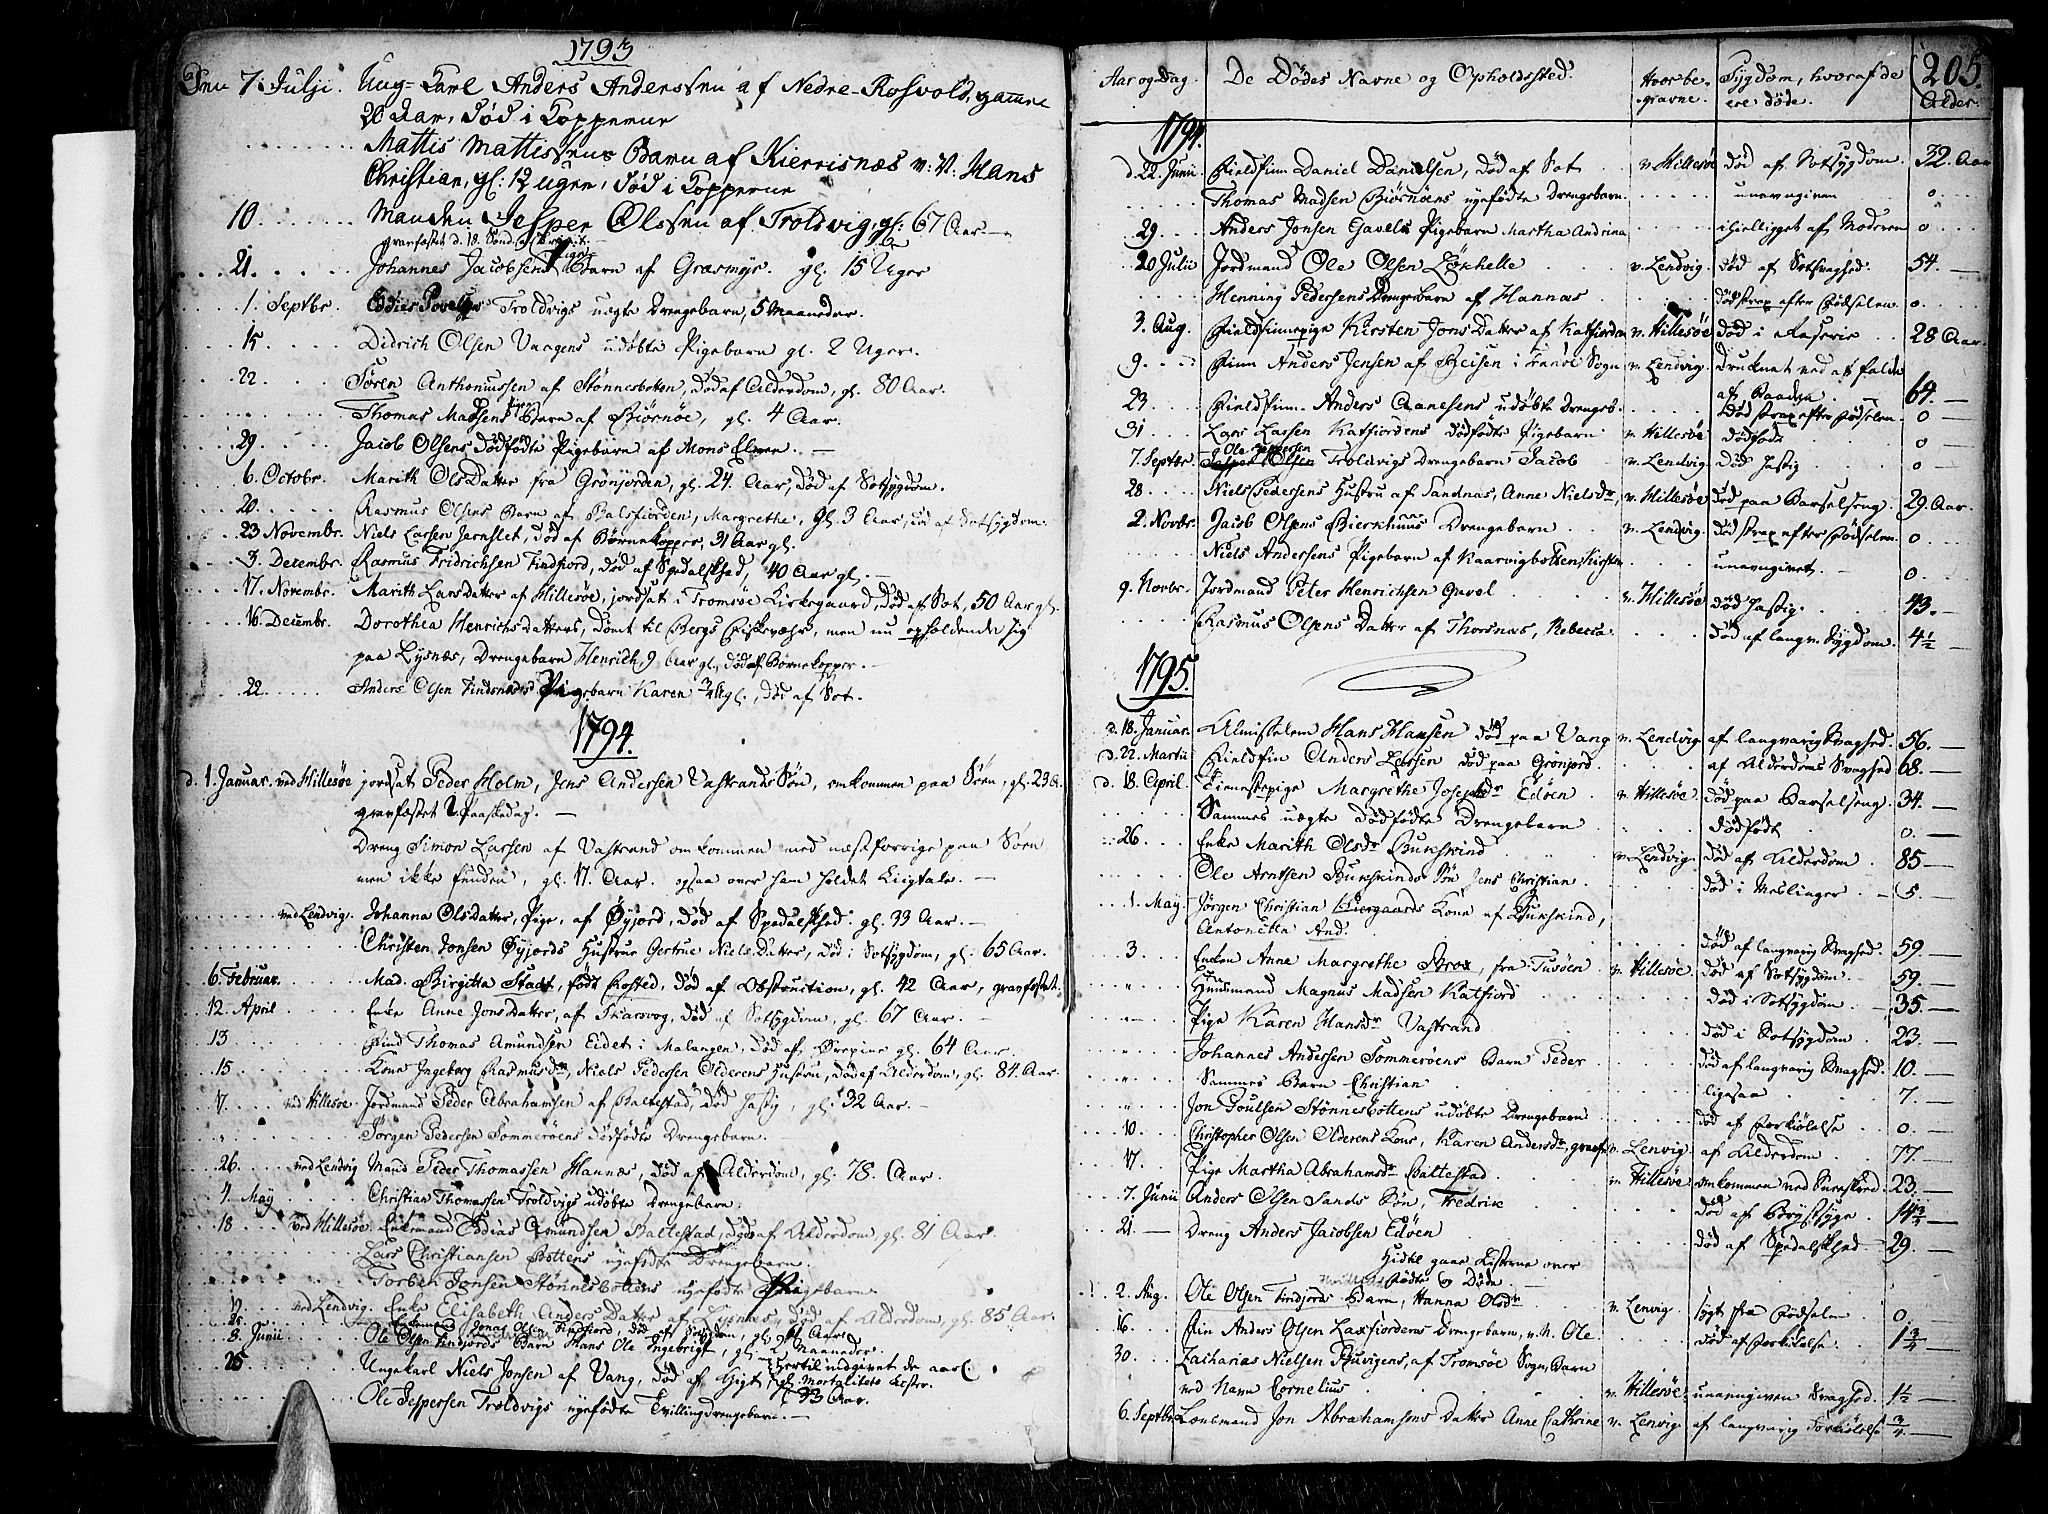 1793
Den 7. Julji. Ung-Karl Anders Anderssen af Nedre-Rosvold, gamme
20 Aar, død i Kopperne
Mattis Mattissens Barn af Kierrisnæs v: N: Hans
Christian, gl: 12 Uger, død i Kopperne
10 Manden Jesper Olssen af Troldvig, gl: 67 Aar
21. Johannes Jacobsens Pige Barn af Græsmyr. gl. 15 Uger
1. Septbr. Troldvigs uægte Drengebarn, 5 Maaneder.
15 Didrich Olsen Vaagens udøbte Pigebarn gl. 2 Uger.
22 Søren Anthoniussen af Stønnesbotten, død af Alderdom, gl. 80 Aar.
" Thomas Madsens Barn af Biørnøe, gl. 4 Aar.
29 Jacob Olsens dødfødte Pigebarn af Mons Elven.
6. Octobr. Marith OlsDatter fra Grönjorden, gl. 24. Aar, død af Sotsygdom.
20. Rasmus Olsens Barn af Balsfiorden, Margrethe, gl. 3 Aar, død af Sotsygdom.
23 Novembr. Niels Larsen Jernslet, død af Børnekopper, 31 Aar gl.
3. Decembr. Rasmus Fridrichsen Findfiord, død af Spedalskhed, 40 Aar gl.
17. Novembr. Marith LarsDatter af Hillesøe, jordsat i Tromsøe Kirkegaard, død af Sot, 50 Aar gl.
16 Decembr. Dorothea HenrichsDatters, dømt til Bergs Fiskevær, men nu opholdende sig
paa Lysnæs, Drengebarn Henrich, 9 Aar gl., død af Børnekopper.
22. Anders Olsen Findsnæs Pigebarn Karen gl., død af Sot.
1794.
d. 1. Januar. ved Hillesøe jordsat Peder Holm, Jens Andersen Vastrands Søn, omkommen paa Søen, gl. 23 A.
gravfæstet 2. Paaskedag.
Dreng Simon Larsen af Vastrand omkommen med næstforrige paa Søen
men ikke funden, gl. 17. Aar. ogsaa over ham holdet Liigtale.
ved Lendvig. Johanna Olsdatter, Pige, af Øyjord, død af Spedalskhed. gl. 33 Aar.
Christen Jonsen Øyjords Hustrue Gertrue NielsDatter, død i Sotsygdom, gl. 65 Aar.
6. Februar. Mad. Birgitta Stadt, født Rosted, død af Obstruction, gl. 42 Aar, gravfæstet.
12. April Enke Anne JonsDatter, af Skarsvog, død af Sotsygdom, gl. 67 Aar.
13 Find Thomas Amundsen Eidet i Malangen, død af gl. 64 Aar.
15 Kone Ingeborg Rasmusdr, Niels Pedersen Olderens Hustru, død af Alderdom, gl. 84. Aar.
17 ved Hillesøe. Jordmand Peder Abrahamsen af Baltestad, død hastig, gl. 32 Aar.
" Jørgen Pedersen Sommerøens dødfødte Drengebarn.
26 ved Lendvig Mand Peder Thomassen Hannæs, død af Alderdom, gl. 78. Aar.
4. May Christian Thomassen Troldvigs udøbte Drengebarn.
18 ved Hillesøe. Enkemand Edias Amundsen Baltestad, død af Alderdom, gl. 81 Aar.
" Lars Christiansen Bottens nyefødte Drengebarn.
Torben Jonsen Stønnesbottens nyefødte Pigebarn.
12. ved Lendvig. Enke Elisabeth AndersDatter af Lysnæs, død af Alderdom, gl. 85 Aar.
25 Jonas Olsen Findfiord, død af Sotsygdom, gl. Aar.
8. Junii Ole Olsen Findjords Barn Hans Ole Ingebrigt, gl. 2 Maaneder.
25 Ungekarl Niels Jonsen af Vang, død af Gigt, gl. 33 Aar. hertil indgivet de aarl. Mortalitets Lister.
Ole Jeppersen Troldvigs nyefødte Tvillingdrengebarn.
205.
Aar og Dag. De Dødes Navne og Opholdssted. Hvor begravne. Sygdom, hvoraf de ere døde. Alder.
1794.
d. 22. Junii Fieldfinn Daniel Danielsen, død af Sot v. Hillesøe død af Sotsygdom. 32. Aar
Thomas Madsen Biørnøens nyefødte Drengebarn. unavngiven 0
29 Anders Jonsen Gavels Pigebarn Martha Andrina ihielligget af Moderen 0
20 Julii Jordmand Ole Olsen Løkhelle v. Lendvig død af Sotsvaghed. 54.
Henning Pedersens Drengebarn af Hannæs død strax efter Fødselen. 0.
3. Aug. Fieldfinnepige Kirsten JonsDatter af Katfiorden v. Hillesøe død i Raseri 28 Aar.
9. Finn Anders Jensen af Reisen i Tranøe Sogn v. Lendvig. Druknet ved at falde
af Baaden 64.
23 Fieldfinn Anders Aanesens udøbte Drengeb. død strax efter Fødselen 0
31 Lars Lassen Katfiordens dødfødte Pigebarn v. Hillesøe dødfødt 0
7. Septbr. Ole Jeppersen Troldvigs Drengebarn Jacob v. Lendvig død hastig 0
28 Niels Pedersens Hustru af Sandnæs, Anne Nielsdr, v. Hillesøe død paa Barselseng. 29 Aar.
2. Novbr. Jacob Olsens Bierkhaug Drengebarn v. Lendvig. død strax efter Fødselen 0.
Niels Andersens Pigebarn af Kaarvigbotten, Kirsten unavngivet. 0.
9. Novbr. Jordmand Peter Henrichsen Gavel v. Hillesøe død hastig 43.
Rasmus Olsens Datter af Thorsnæs, Rebecca død af langv. Sygdom. 4½
1795.
d. 18. Januar. Almisselem Hans Hansen død paa Vang v. Lendvig. af langvarig Svaghed. 56.
d. 22. Martii Fieldfin Anders Larssen død paa Grönjord. af Alderdoms Svaghed 68.
d. 18. April Tienestepige Margrethe Josephsdr Edøen v. Hillesøe. død paa Barselseng. 34.
Sammes uægte dødfødte Drengebarn dødfødt 0.
26 Enke Marith Olsdr Bukskind v. Lendvig. død af Alderdom 85
Ole Arntsen Bukskinds Søn Jens Christian død i Meslinger 5
1. May. Jørgen Christian Kiergaards Kone af Bukskind,
Antonetta And. død af langvarig Svaghed. 59.
3 Enken Anne Margrethe Brox, fra Tusøen v. Hillesøe. død af Sotsygdom. 59.
" Huusmand Magnus Madsen Katfiord død i Sotsygdom 35.
" Pige Karen Hansdr Vastrand død i Sotsygdom. 23.
" Johannes Andersen Sommerøens Barn Peder død af langvarig Svaghed. 10.
" Sammes Barn Christian ligesaa 7.
" Jon Poulsen Stønnesbottens udøbte Drengebarn død af Forkiølelse 0.
10 Christopher Olsen Olderens Kone, Karen Andersdr, gravf. v. Lenvig. af Alderdom 77
17. Pige Martha Abrahamsdr Baltestad v. Hillesøe omkommen ved Sneeskred. 23.
7. Junii Anders Olsen Sands Søn, Fredrik død af Brystsyge 14¾
21. Dreng Anders Jacobsen Edøen død af Spedalskhed 29.
Hidtil gaae Listerne over
Fødte og Døde.
2. Aug. Ole Olsen Findjords Barn, Hanna Olsdr v. Lenvig. sygt fra Fødselen 0.
16. Fin Anders Olsen Laxfiordens Drengebarn, v. N. Ole. død af Forkiølelse 1¾
30 Zacharias Nielsen Skuvigens, af Tromsøe Sogn, Barn
ved Navn Cornelius v. Hillesøe. unavngiven Svaghed. 1½
6. Septbr. Lensmand Jon Abrahamsens Datter Anne Cathrine v. Lenvig. af langvarig Forkiølelse ¾